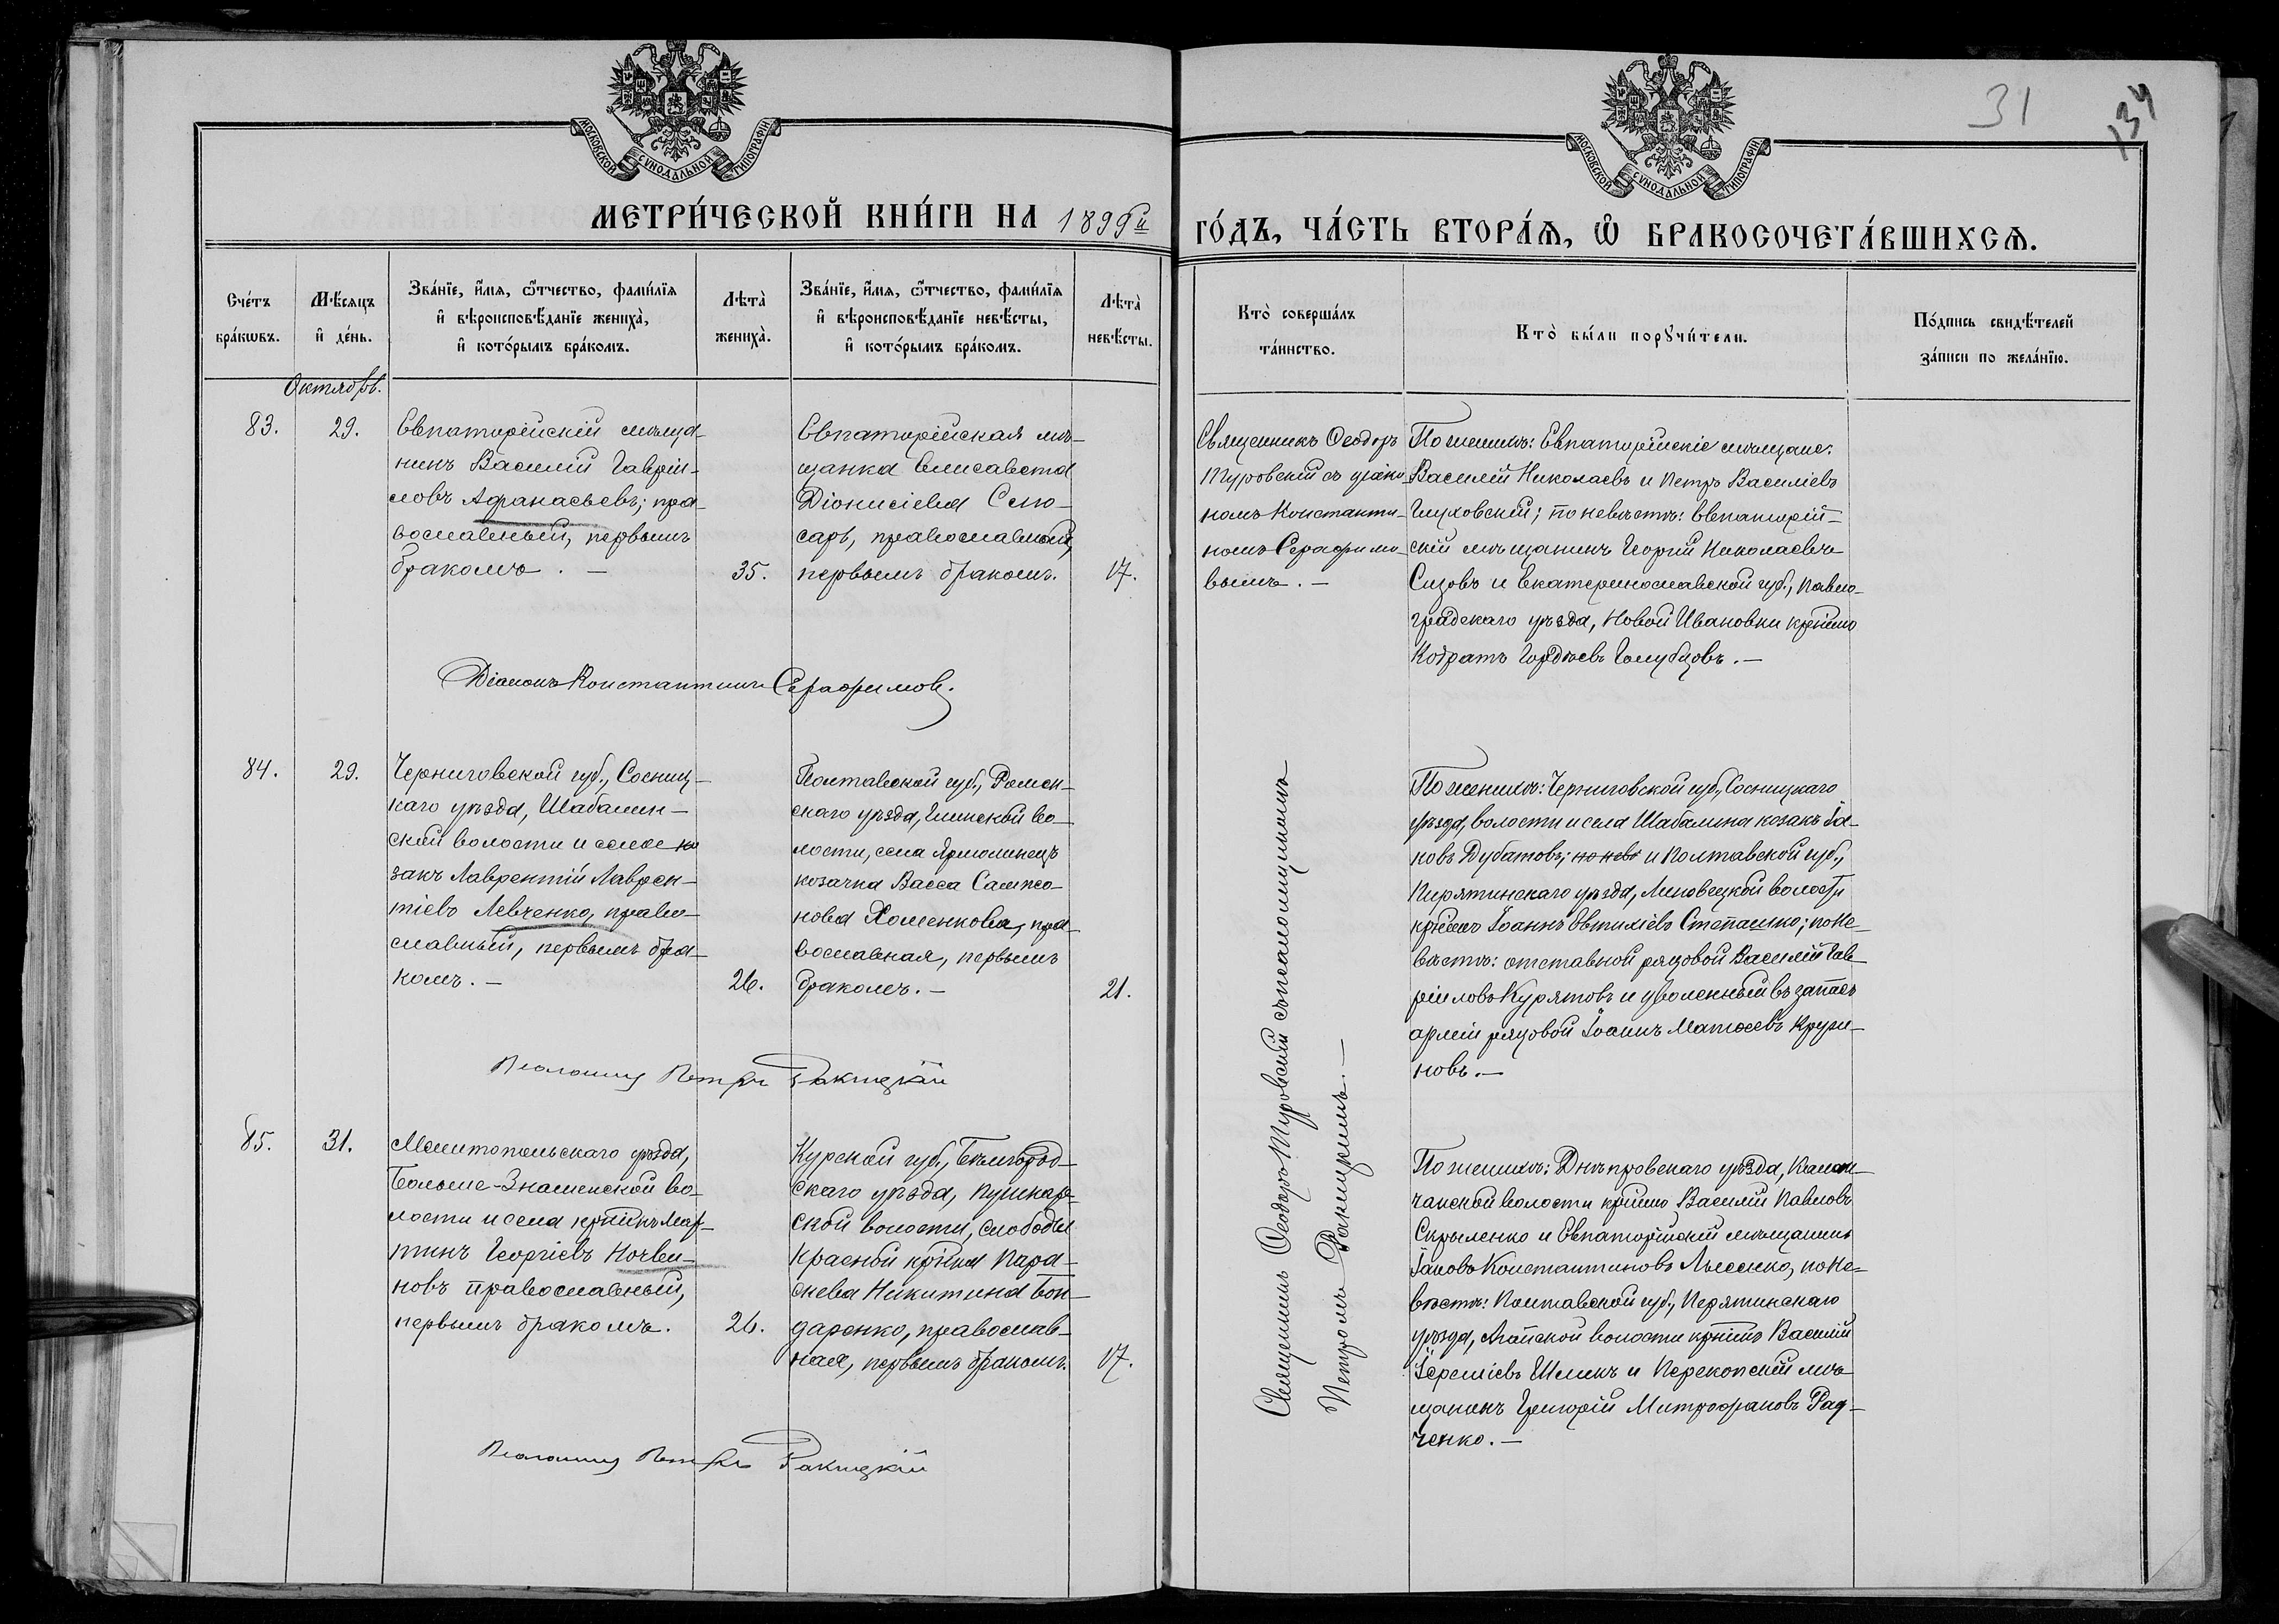 31
134
МОСКОВСКОЙ СУНОДАЛЬНОЙ ТИПОГРАФІИ
МОСКОВСКОЙ СУНОДАЛЬНОЙ ТИПОГРАФІИ
МЕТРИ́ЧЕСКОЙ КНИ́ГИ НА 1899й
ГО́ДЪ, ЧА́СТЬ ВТОРА́Ѧ, Ѿ БРАКОСОЧЕТА́ВШИХСѦ.
Сче́тъ
бра́кѡвъ.
Мѣ́сяцъ
и҆ де́нь.
Зва́нїе, и҆́мѧ, ѻ҆́тчество, фами́лїѧ
и҆ вѣроисповѣ́данїе жениха̀,
и҆ кото́рымъ бра́комъ.
Лѣта̀
жениха̀.
Зва́нїе, и҆́мѧ, ѻ҆́тчество, фами́лїѧ
и҆ вѣроисповѣ́данїе невѣ́сты,
и҆ кото́рымъ бра́комъ.
Лѣта̀
невѣ́сты.
Кто̀ соверша́лъ
та́инство.
Кто̀ бы́ли пору́чи́тели.
По́дпись свидѣ́телей
за́писи по жела́нїю.
Октябрь.
83.
29.
Евпаторійскій мѣща-
нинъ Василій Гавріи-
ловъ Афанасьевъ; пра-
вославный, первымъ
бракомъ. —
35.
Евпаторійская мѣ-
щанка Елисавета
Діонисіева Слю-
сарь, православной,
первымъ бракомъ.
17.
Священникъ Ѳеодоръ
Туровскій съ діако-
номъ Константи-
номъ Серафимо-
вымъ. —
По женихѣ: Евпаторійскіе мѣщане:
Василій Николаевъ и Петръ Василіевъ
Глуховскій; по невѣстѣ: Евпаторій-
скій мѣщанинъ Георгій Николаевъ
Сизовъ и Екатеринославской губ., Павло-
градскаго уѣзда, Новой Ивановки крнинъ
Кодратъ Гордѣевъ Голубцовъ. —
Діаконъ Константинъ Серафимовъ.
84.
29.
Черниговской губ., Сосниц-
каго уѣзда, Шабалин-
ской волости и села ко
закъ Лаврентій Лаврен-
тіевъ Левченко, право-
славный, первымъ бра-
комъ. —
26.
Полтавской губ., Ромен-
скаго уѣзда, Глинской во-
лости, села Ярмолинецъ
козачка Васса Сампсо-
нова Хоменкова, пра-
вославная, первымъ
бракомъ. —
21.
Священникъ Ѳеодоръ Туровскій съ псаломщикомъ
Петромъ Ракицкимъ. —
По женихѣ: Черниговской губ., Сосницкаго
уѣзда, волости и села Шабалина козакъ Іа-
ковъ Дубатовъ; по невѣ и Полтавской губ.,
Пирятинскаго уѣзда, Линовецкой волости
крнинъ Іоаннъ Евтихіевъ Степашко; по не-
вѣстѣ: отставной рядовой Василій Гав-
ріиловъ Курятовъ и уволенный въ запасъ
арміи рядовой Іоаннъ Матѳеевъ Кружи-
новъ. —
Псаломщ Петръ Ракицкій
85.
31.
Мелитопольскаго уѣзда,
Больше-Знаменской во-
лости и села крнинъ Мар-
тинъ Георгіевъ Ночви-
новъ православный,
первымъ бракомъ.
26.
Курской губ., Бѣлгород-
скаго уѣзда, Пушкар-
ской волости, слободы
Красной крнка Пара-
скева Никитина Бон-
даренко, православ-
ная, первымъ бракомъ.
17.
По женихѣ: Днѣпровскаго уѣзда, Калан-
чакской волости крнинъ Василій Павловъ
Скрыленко и Евпаторійскій мѣщанинъ
Іаковъ Константиновъ Лысенко, по не-
вѣстѣ: Полтавской губ., Перятинскаго
уѣзда, волости крнинъ Василій
Іереміевъ Шликъ и Перекопскій мѣ-
щанинъ Григорій Митрофановъ Рад-
ченко. —
Псаломщ Петръ Ракицкій